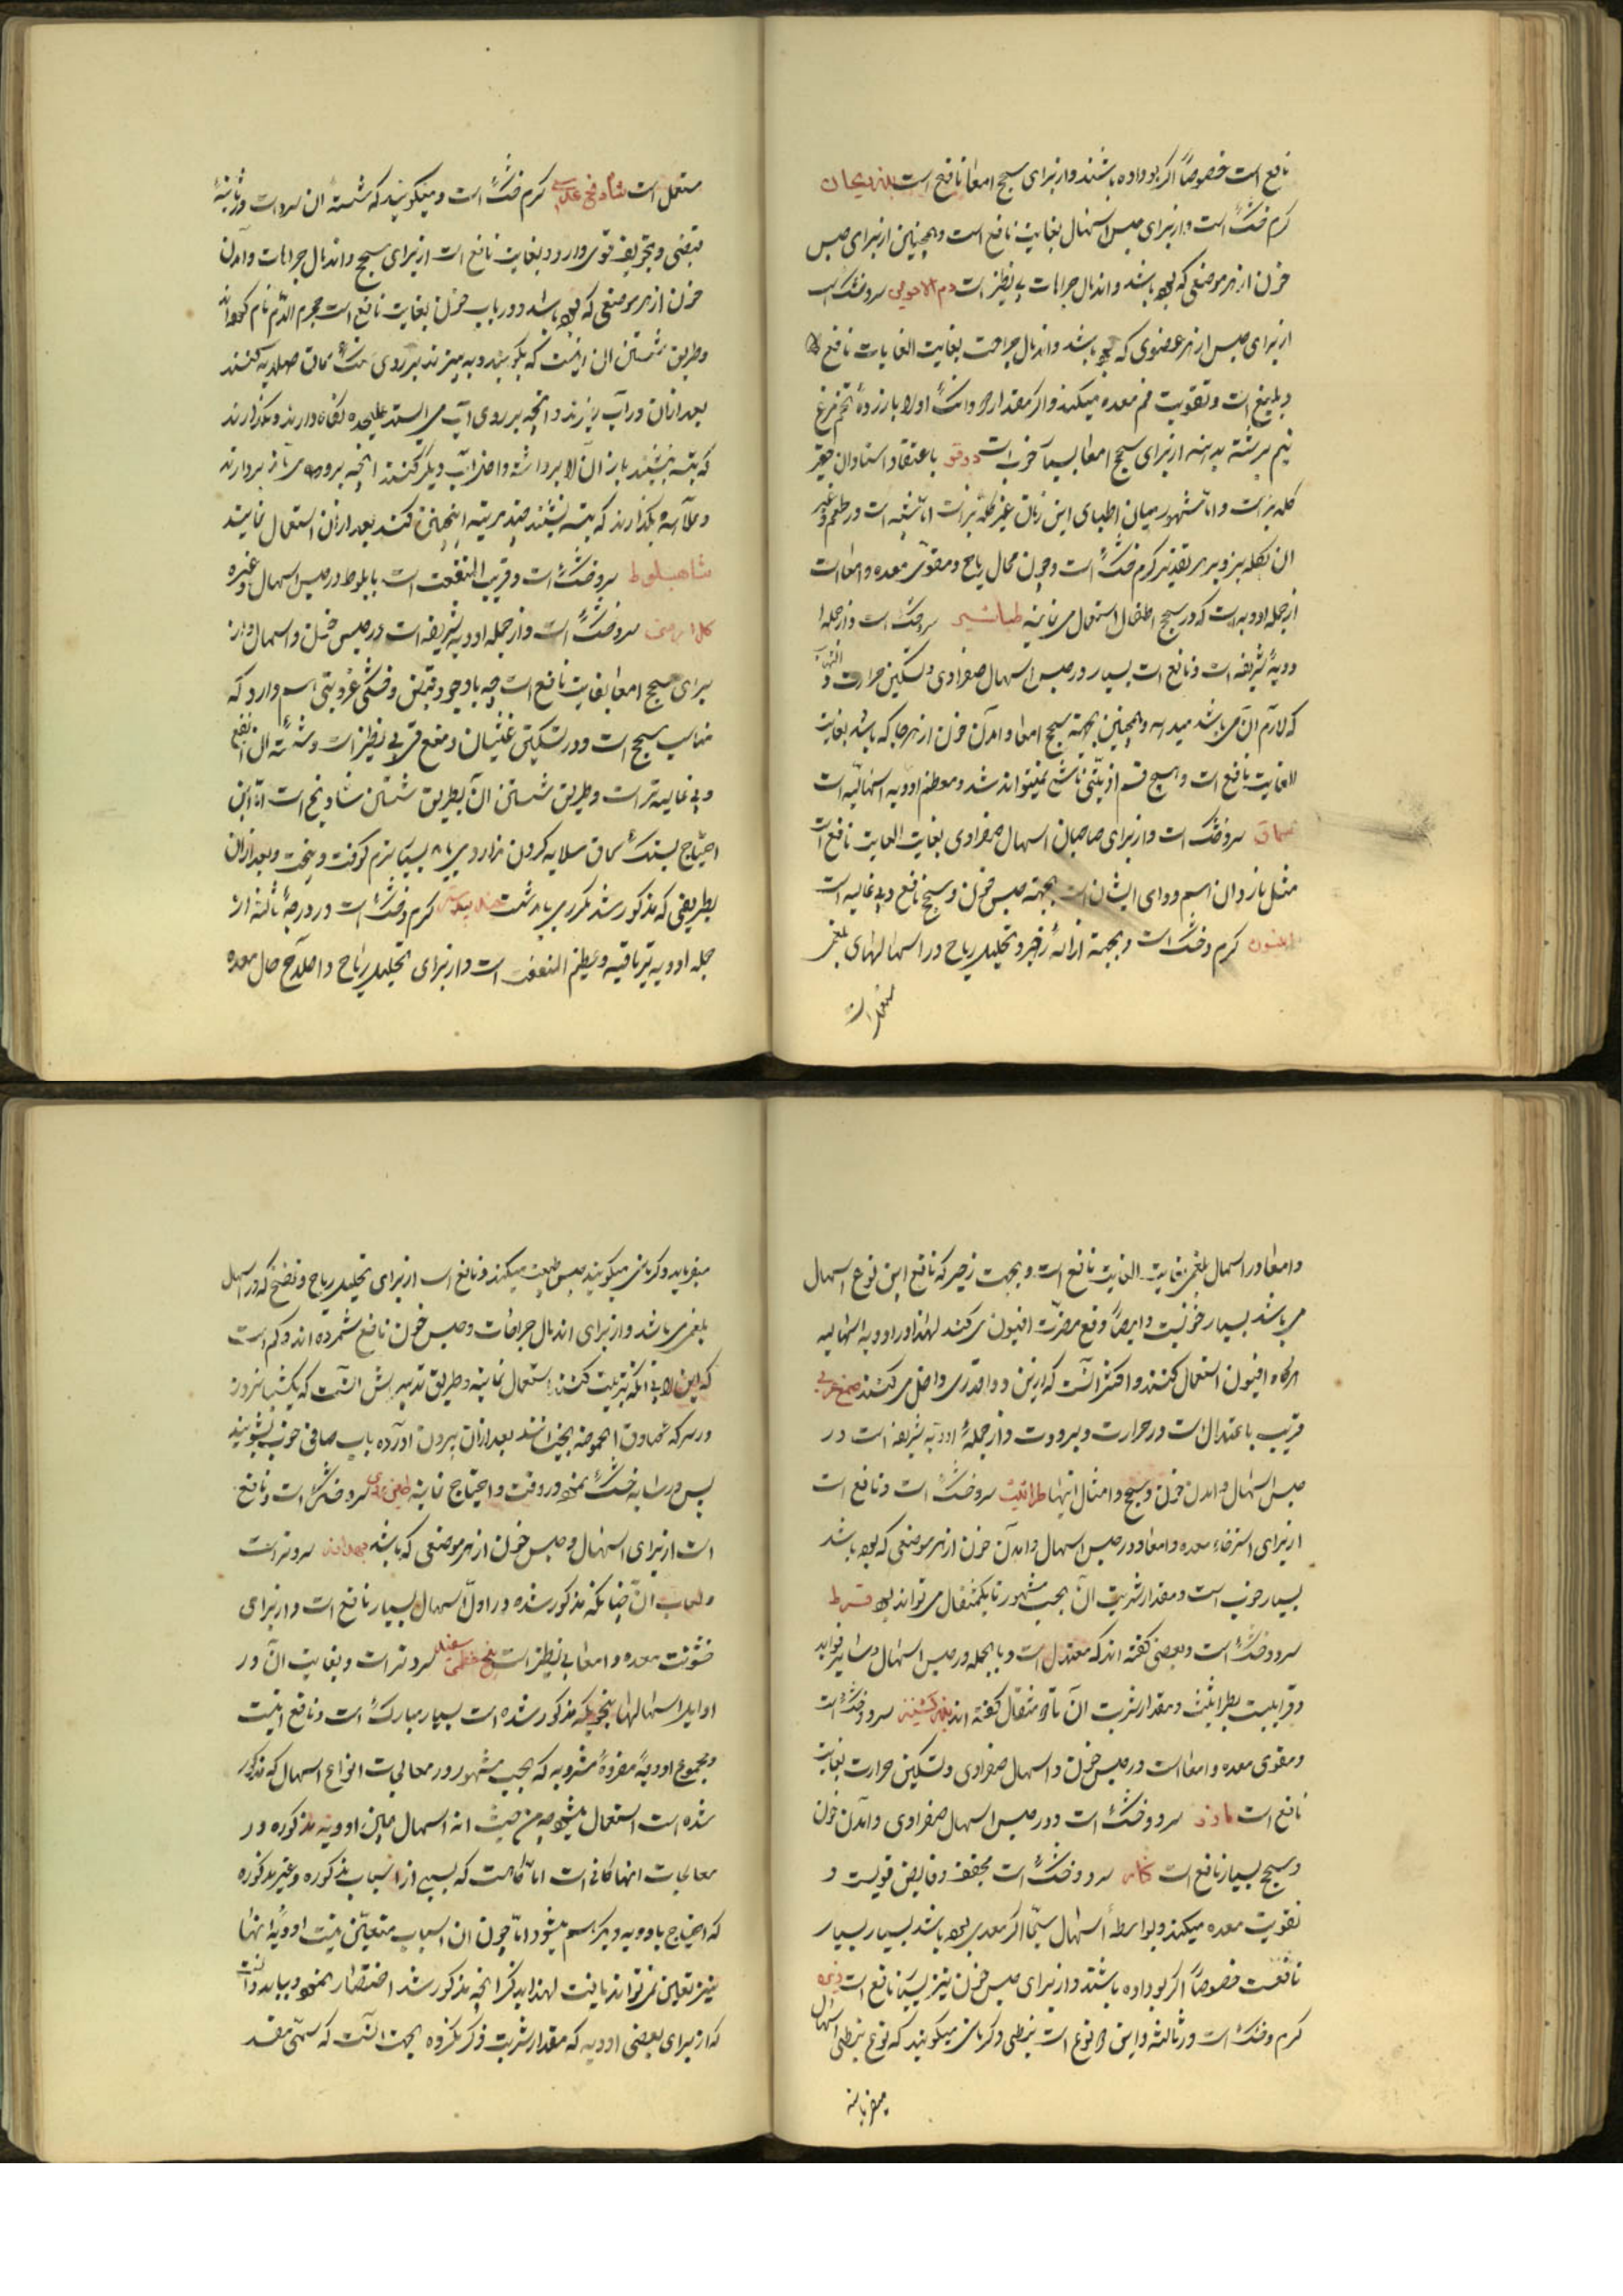 نافع است خصوصاً اگر بو داده باشند و از برای سحج امعا نافع است بذر ریحان
گرم خشک است و از برای حبس اسهال بغایت نافع است و همچنین از برای حبس
خون از هر موضعی که بوده باشد و اندمال جراحات بی نظیر است دم الاخوین سرد خشک است
از برای حبس از هر عضوی که بوده باشد و اندمال جراحت بغایت الغایات نافع
و بلیغ است و تقویت فم معده میکند و اگر مقدار دو دانک او را با زرده تخم مرغ
نیم برشته بدهند از برای سحج امعا بسیار خوب است دوقو باعتقاد استادان حقیر
کله بز است و اما مشهور میان اطبای این زمان غیر کله بز است اما شبیه است در طعم و غیره
ان بکله بز و بر هر تقدیر گرم خشک است و چون محلل ریاح و مقوی معده و امعا است
از جمله ادویه است که در سحج اطفال استعمال می نمایند طباشیر سرد خشک است و از جمله
ادویهٔ شریفه است و نافع است بسیار در حبس اسهال صفراوی و تسکین حرارت و التهاب
که لازم آن می باشد میدهد و همچنین بجهة سحج امعا و امدن خون از هر جا که باشد بغایت
الغایت نافع است و هیچ قسم اذیتی ناشی نمیتواند شد و معظم ادویه اسهالیه است
سماق سرد خشک است و از برای صاحبان اسهال صفراوی بغایت الغایت نافع است
مثل نازدان اسم و دوای ایشان است بجهته حبس خون و سحج نافع و بی غائله است
انیسون گرم و خشک است و بجهة ازالهٔ زحیر و تحلیل ریاح در اسهالهای بلغمی
مستعمل است
مستعمل است شادنج عدسی گرم خشک است و میگویند که شسته ان سرد است در ثانیهٔ
قبضی و تجفیف قوی دارد و بغایت نافع است از برای سحج و اندمال جراحات و آمدن
خون از هر موضعی که بوده باشد و در باب خون بغایت نافع است حجر الدم نام کرده‌اند
و طریق شستن ان اینست که بکوبند و به بیزند بر روی سنک سماق صلایه کنند
بعد از ان در آب ریزند و انچه بر روی آب می ایستد علیحده نگاه دارند و بگذارند
که ته نشیند باز آن آب را برداشته و اضافه آب دیگر کنند انچه بر روی می‌ماند بردارند
و علاحده بگذارند که بته نشیند چند مرتبه اینچنین کنند بعد از ان استعمال نمایند
شاهبلوط سرد خشک است و قریب المنفعت است ببلوط در حبس اسهال و غیره
کل ارمنی سرد خشک است و از جمله ادویه شریفه است در حبس خون و اسهال و از
برای سحج امعا بغایت نافع است چه با وجود قبض و خشکی غرویتی هم دارد که
مناسب سحج است و در تسکین غثیان و منع قی بی نظیر است و شسته ان انفع
و بی غائله تر است و طریق شستن ان بطریق شستن شادنج است اما این
احتیاج بسنک سماق سلایه کردن ندارد می باید بسیار نرم کوفت و بیخت و بعد از ان
بطریقی که مذکور شد مکرر می باید شست گرم و خشک است در درجهٔ ثالثه از
جمله ادویه تریاقیه و عظیم النفع است و از برای تحلیل ریاح و اصلاح حال معده
و امعا در اسهال بلغمی بغایت الغایت نافع است و بجهت زحیر که تابع این نوع اسهال
می باشد بسیار خوبست و ایضاً دفع مضرت افیون می کند لهذا در ادویه اسهالیه
هرگاه افیون استعمال کنند و اکثر آنست که ازین دوا قدری داخل می کنند صمغ عربی
قریب باعتدال است در حرارت و برودت و از جملهٔ ادویه شریفه است در
حبس اسهال و امدن خون و سحج و امثال اینها طراثیث سرد خشک است و نافع است
از برای استرخاء معده و امعا و در حبس اسهال و امدن خون از هر موضعی که بوده باشد
بسیار خوب است و مقدار شربت آن بحب مشهور تا یکمثقال می تواند بود قرط
سرد و خشک است و بعضی گفته اند که معتدل است و بالجمله در حبس اسهال و سایر فواید
و قرابیت بطراثیث و مقدار شربت آن تا دو مثقال گفته اند تخم کشنیز سرد و خشک است
و مقوی معده و امعا است در حبس خون و اسهال صفراوی و تسکین حرارت بغایت
نافع است مازو سرد و خشک است و در حبس اسهال صفراوی و آمدن خون
و سحج بسیار نافع است سرد و خشک است مجفف و قابض قویست و
تقویت معده میکند و بواسطهٔ اسهال سیما اگر معدی بوده باشد بسیار بسیار
نافعست خصوصاً اگر بو داده باشند و از برای حبس خون نیز بسیار نافع است زیره
گرم و خشک است در ثالثه و این دو نوع است نبطی و کرمانی میگویند که نوع نبطی اسهال
میفرماید
میفرماید و کرمانی میگویند حبس طبیعت میکند و نافع است از برای تحلیل ریاح و نفخ که در اسهال
بلغمی می باشد و از برای اندمال جراحات و حبس خون نافع شمرده اند و کم است
که این را بی انکه تربیت کنند استعمال نمایند و طریق تدبیرش انست که یکشبانروز
در سرکه صادق الحموضه بخیسانند بعد از ان بیرون اورده باب صافی خوب بشویند
پس در سایه خشک نموده در وقت احتیاج نمایند سرد خشک است و نافع
است از برای اسهال و حبس خون از هر موضعی که باشد بهدانه سرد تر است
و لعاب ان چنانکه مذکور شده در اول اسهال بسیار نافع است و از برای
خشونت معده و امعا بی نظیر است تخم خطمی سفید سرد تر است و بغایت آن در
اوایل اسهالها بنحویکه مذکور شده است بسیار مبارک است و نافع اینست
مجموع ادویهٔ مفردهٔ مشروبه که بحسب مشهور در معالجات انواع اسهال که مذکور
شده است استعمال میشود چه من حیث انه اسهال همین ادویه مذکوره در
معالجات انها کافی است اما گاهست که بسبب از اسباب مذکوره و غیر مذکوره
که احتیاج بادویه دیگر هم میشود اما چون ان اسباب متعین نیست ادویهٔ انها
نیز تعین نمی تواند یافت لهذا بذکر انچه مذکور شد اختصار نمود و بباید دانست
که از برای بعضی ادویه که مقدار شربت ذکر نکرده بجهت انست که سمّی مفسد